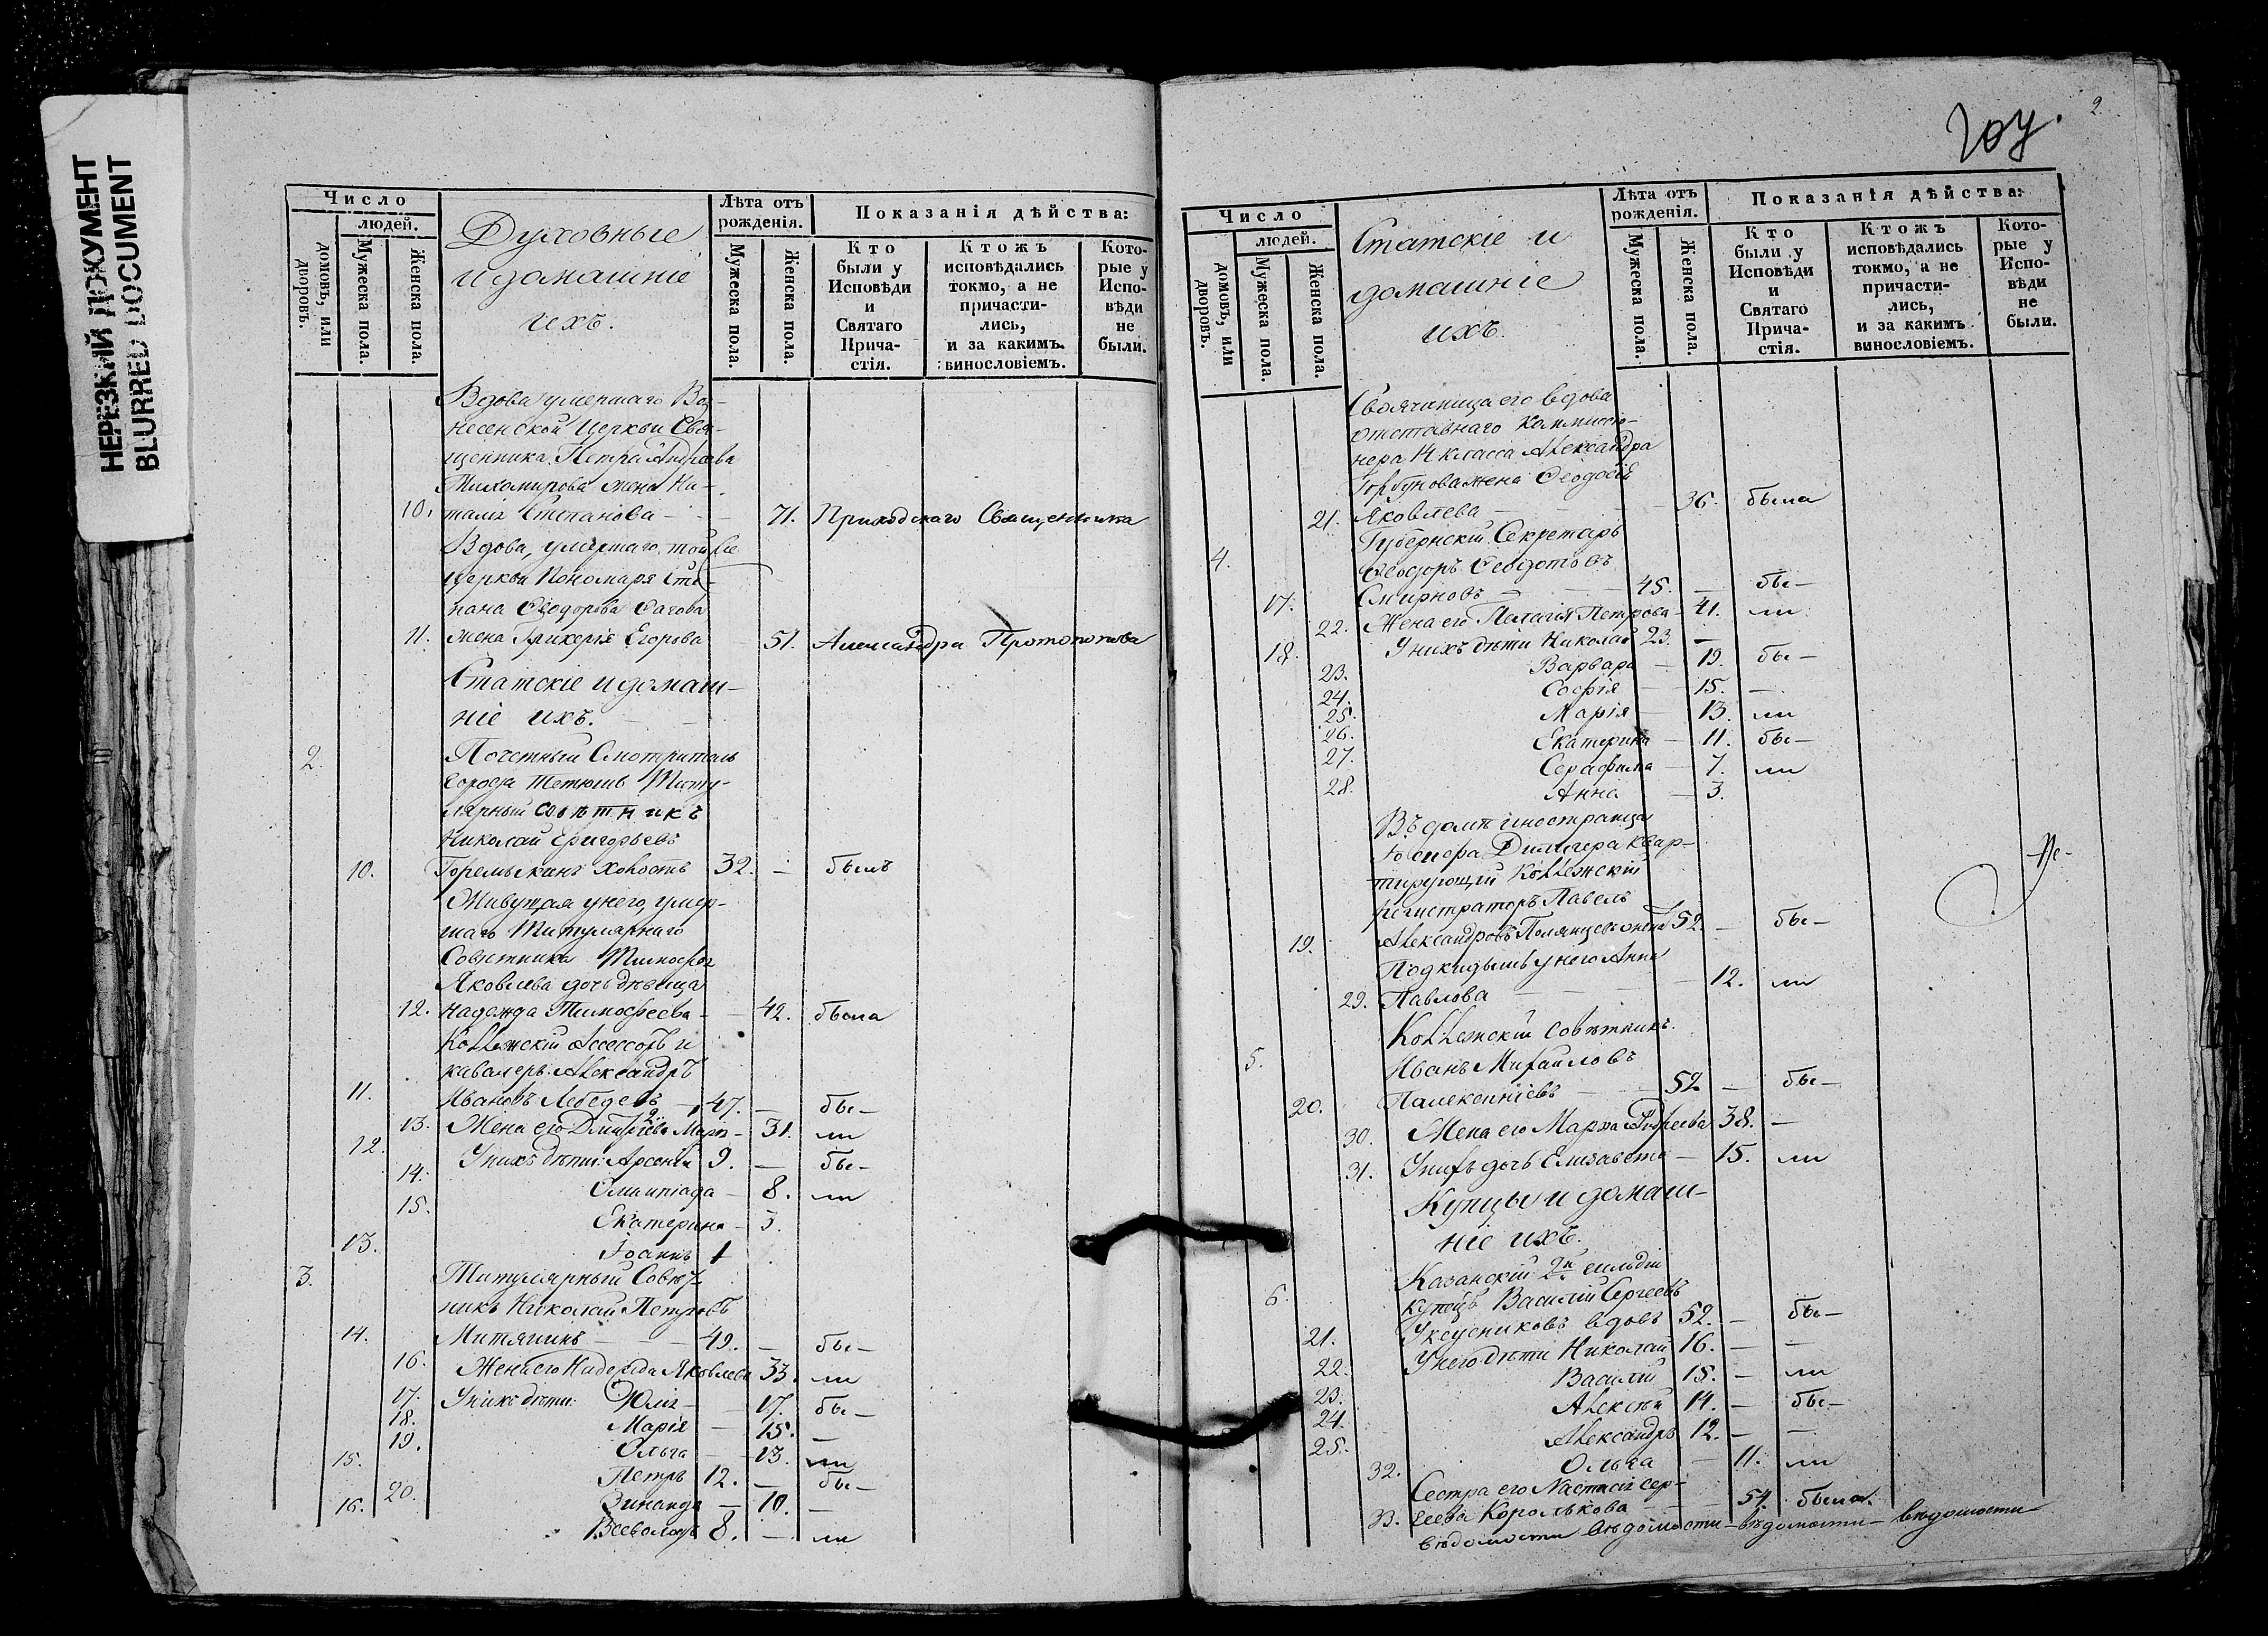 НЕРЕЗКИЙ ДОКУМЕНТ
BLURRED DOCUMENT
Число
людей.
домовъ, или дворовъ.
Мужеска пола.
Женска пола.
Духовные
и домашніе
ихъ.
Лѣта отъ рожденія.
Мужеска пола.
Женска пола.
Показанія дѣйства:
Кто были у Исповѣди и Святаго Прича-стія.
Ктожъ исповѣдались токмо, а не причасти-лись, и за какимъ винословіемъ.
Кото-рые у Испо-вѣди не были.
Вдова умершаго Воз-
несенской Церкви Свя-
щенника Петра Андреева
Тихомирова жена На-
10. талія Степанова 71. Приходскаго Священника
Вдова, умершаго той же
Церкви Пономаря Сте-
пана Ѳеодорова
11. жена Гликерія Егорова 51. Александра Протопопова
Статскіе и домаш-
ніе ихъ.
2. Почетный Смотритель
города Тетюшъ Титу-
лярный Совѣтникъ
Николай Григорьевъ
10. Горемыкинъ холостъ 32. — былъ
Живущая у него, умер-
шаго Титулярнаго
Совѣтника Тимофея
Яковлева дочь дѣвица
12. Надежда Тимофеева — 42. была
Коллежскій Ассессоръ и
кавалеръ Александръ
11. Ивановъ Лебедевъ — 47. — бы—
13. Жена его Дмитріева Марія — 31. ли
12. У нихъ дѣти: Арсеній 9. — бы—
14. Олимпіада — 8. ли
15. Екатерина — 3.
13. Іоаннъ 1
3. Титулярный Совѣт-
никъ Николай Петровъ
14. Митягинъ — 49. — бы—
16. Жена его Надежда Яковлева 33. ли
17. У нихъ дѣти: Юлія — 17. бы—
18. Марія — 15. —
19. Ольга — 13. ли
15. Петръ 12. — бы—
20. Зинаида — 10. —
16. Всеволодъ 8. — ли
2
Число
людей.
домовъ, или дворовъ.
Мужеска пола.
Женска пола.
Статскіе и
домашніе
ихъ.
Лѣта отъ рожденія.
Мужеска пола.
Женска пола.
Показанія дѣйства:
Кто были у Исповѣди и Святаго Прича-стія.
Ктожъ исповѣдались токмо, а не причасти-лись, и за какимъ винословіемъ.
Кото-рые у Испо-вѣди не были.
Своячиница его вдова
отставнаго Коммисіо-
нера 14 класса Александра
Горбунова жена Ѳеодосія
21. Яковлева — 36. была
4. Губернскій Секретарь
Ѳеодоръ Ѳедотовъ
17. Смирновъ — 45. — бы—
22. Жена его Пелагія Петрова — 41. ли
18. У нихъ дѣти Николай 23. —
23. Варвара — 19. бы—
24. Софія — 15. —
25. Марія — 13. ли
26. Екатерина — 11. бы—
27. Серафима — 7. ли
28. Анна — 3.
Въ домѣ иностранца
квар-
тирующій Коллежскій
регистраторъ Павелъ
19. Александровъ 52. — бы— не-
Подкидышъ у него Анна
29. Павлова — 12. ли
5. Коллежскій Совѣтникъ
Иванъ Михайловъ
20. 52 — бы—
30. Жена его Марѳа Андреева 38. —
31. У нихъ дочь Елизавета — 15. ли
Купцы и домаш-
ніе ихъ.
6. Казанскій 2й гильдіи
купецъ Василій Сергеевъ
21. Уксусниковъ вдовъ 52. — бы—
22. У него дѣти Николай 16. — —
23. Василій 15. — ли
24. Алексѣй 14. — бы—
25. Александръ 12. — —
32. Ольга — 11. ли
Сестра его Настасія Сер-
33. геева Королькова — 54. была.
вѣдомости вѣдомости — вѣдомости — вѣдомости